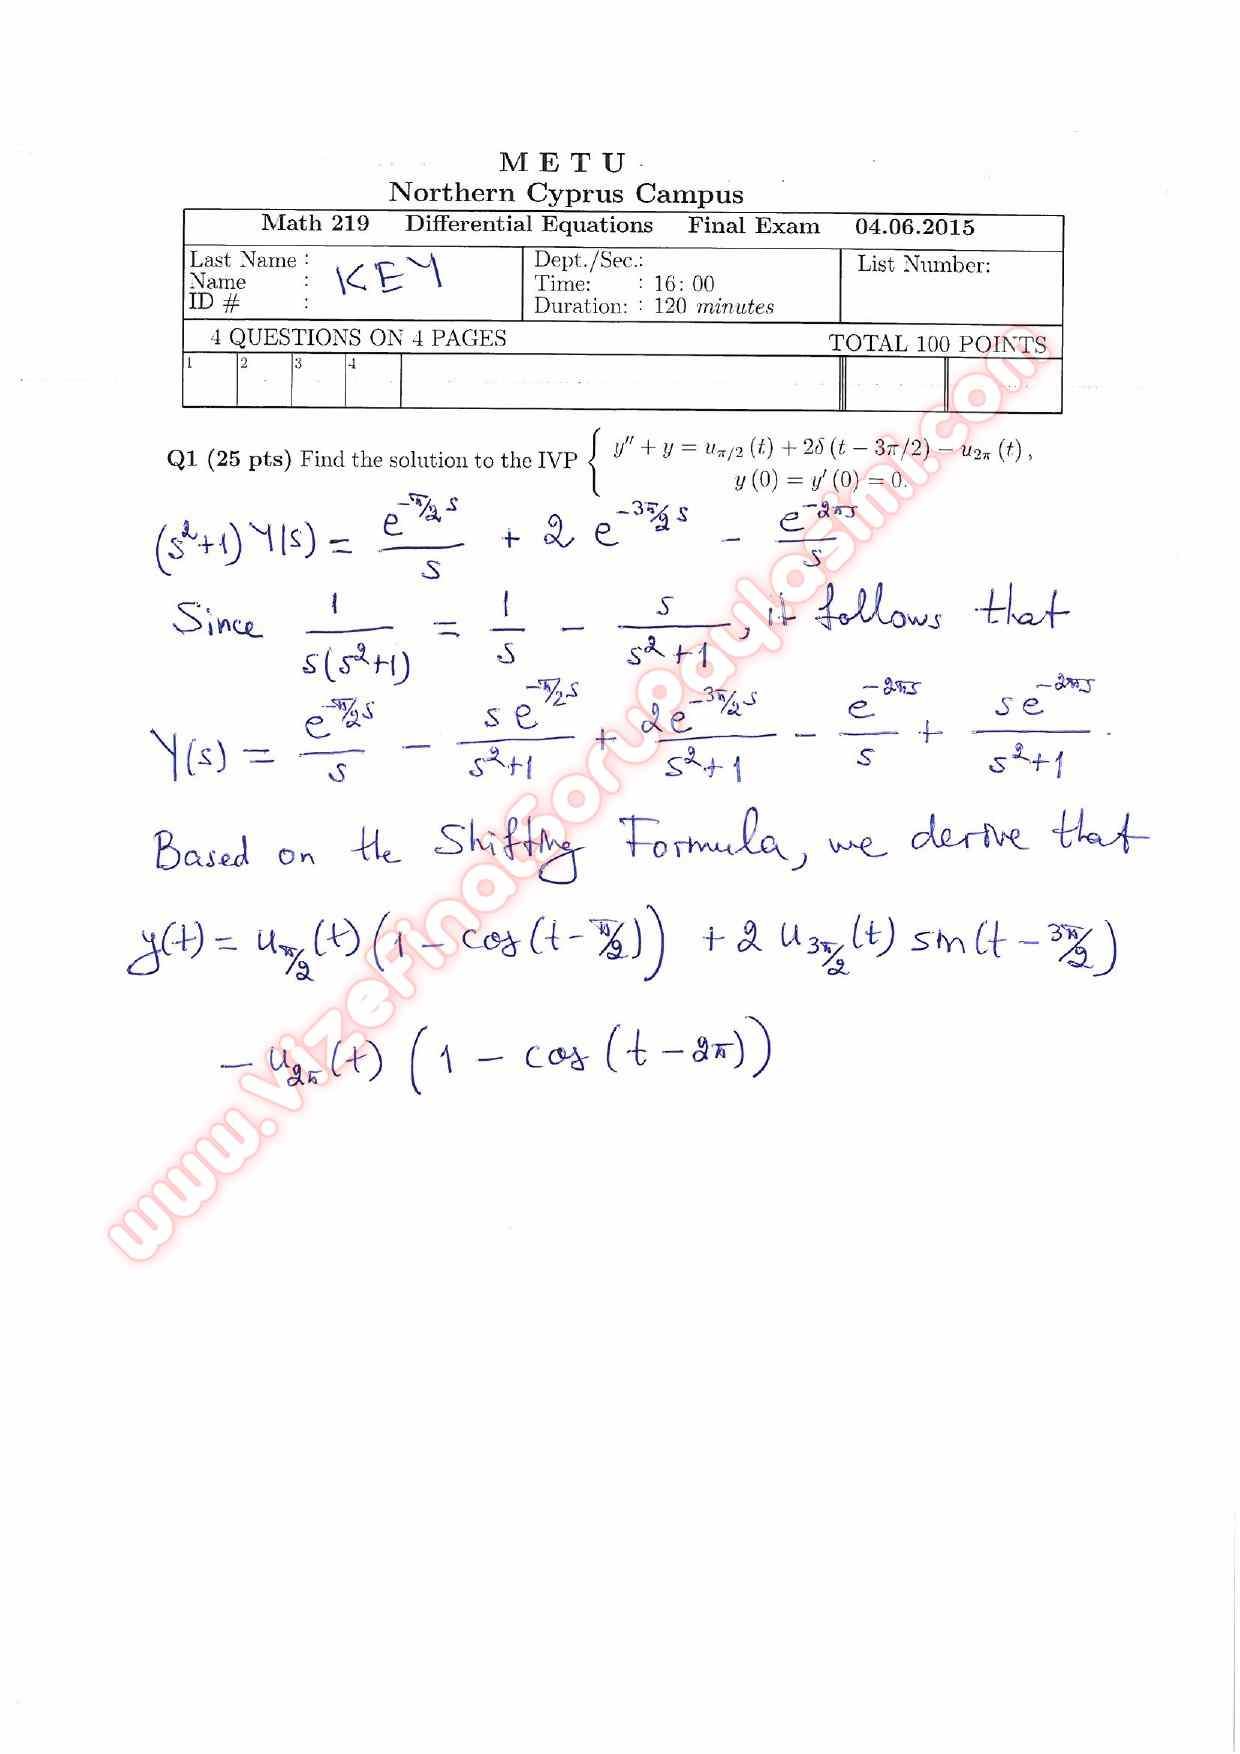 M E T U
Northern Cyprus Campus
Math 219 Differential Equations Final Exam 04.06.2015
Last Name :
Name :
ID # :
KEY
Dept./Sec.:
Time: : 16: 00
Duration: : 120 minutes
List Number:
4 QUESTIONS ON 4 PAGES TOTAL 100 POINTS
1 2 3 4
Q1 (25 pts) Find the solution to the IVP { y″ + y = u_{π/2} (t) + 2δ (t − 3π/2) − u_{2π} (t) ,
y (0) = y′ (0) = 0.
(s²+1) Y(s) = e^{-π/2 s}/s + 2 e^{-3π/2 s} − e^{-2πs}/s
Since 1/(s(s²+1)) = 1/s − s/(s²+1), it follows that
Y(s) = e^{-π/2 s}/s − s e^{-π/2 s}/(s²+1) + 2e^{-3π/2 s}/(s²+1) − e^{-2πs}/s + s e^{-2πs}/(s²+1).
Based on the Shifting Formula, we derive that
y(t) = u_{π/2}(t)(1 − cos(t − π/2)) + 2 u_{3π/2}(t) sin(t − 3π/2)
− u_{2π}(t) (1 − cos (t − 2π))
www.VizeFinalSoruPaylasimi.com